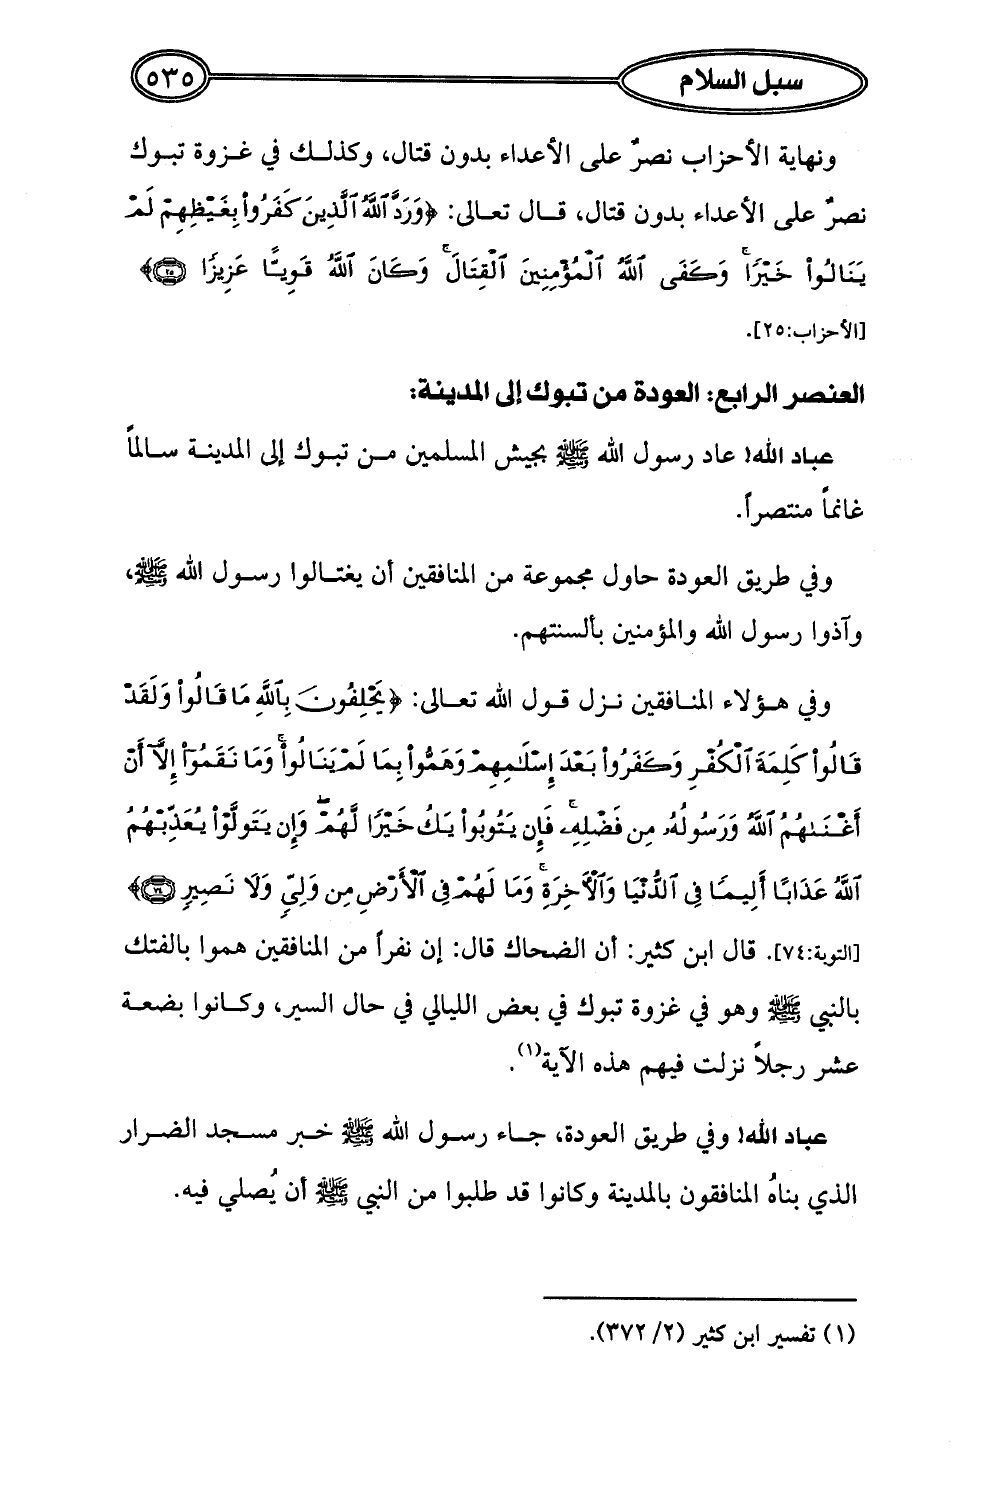 سبل السلام
٥٣٥
ونهاية الأحزاب نصرٌ على الأعداء بدون قتال، وكذلك في غزوة تبوك
نصرٌ على الأعداء بدون قتال، قال تعالى: ﴿وَرَدَّ ٱللَّهُ ٱلَّذِينَ كَفَرُوا۟ بِغَيْظِهِمْ لَمْ
يَنَالُوا۟ خَيْرًا ۚ وَكَفَى ٱللَّهُ ٱلْمُؤْمِنِينَ ٱلْقِتَالَ ۚ وَكَانَ ٱللَّهُ قَوِيًّا عَزِيزًا ٢٥﴾
[الأحزاب:٢٥].
العنصر الرابع: العودة من تبوك إلى المدينة:
عباد الله! عاد رسول الله ﷺ بجيش المسلمين من تبوك إلى المدينة سالماً
غانماً منتصراً.
وفي طريق العودة حاول مجموعة من المنافقين أن يغتالوا رسول الله ﷺ،
وآذوا رسول الله والمؤمنين بألسنتهم.
وفي هؤلاء المنافقين نزل قول الله تعالى: ﴿يَحْلِفُونَ بِٱللَّهِ مَا قَالُوا۟ وَلَقَدْ
قَالُوا۟ كَلِمَةَ ٱلْكُفْرِ وَكَفَرُوا۟ بَعْدَ إِسْلَٰمِهِمْ وَهَمُّوا۟ بِمَا لَمْ يَنَالُوا۟ ۚ وَمَا نَقَمُوٓا۟ إِلَّآ أَنْ
أَغْنَىٰهُمُ ٱللَّهُ وَرَسُولُهُۥ مِن فَضْلِهِۦ ۚ فَإِن يَتُوبُوا۟ يَكُ خَيْرًا لَّهُمْ ۖ وَإِن يَتَوَلَّوْا۟ يُعَذِّبْهُمُ
ٱللَّهُ عَذَابًا أَلِيمًا فِى ٱلدُّنْيَا وَٱلْـَٔاخِرَةِ ۚ وَمَا لَهُمْ فِى ٱلْأَرْضِ مِن وَلِىٍّ وَلَا نَصِيرٍ ٧٤﴾
[التوبة:٧٤]. قال ابن كثير: أن الضحاك قال: إن نفراً من المنافقين هموا بالفتك
بالنبي ﷺ وهو في غزوة تبوك في بعض الليالي في حال السير، وكانوا بضعة
عشر رجلاً نزلت فيهم هذه الآية(١).
عباد الله! وفي طريق العودة، جاء رسول الله ﷺ خبر مسجد الضرار
الذي بناهُ المنافقون بالمدينة وكانوا قد طلبوا من النبي ﷺ أن يُصلي فيه.
(١) تفسير ابن كثير (٢/ ٣٧٢).